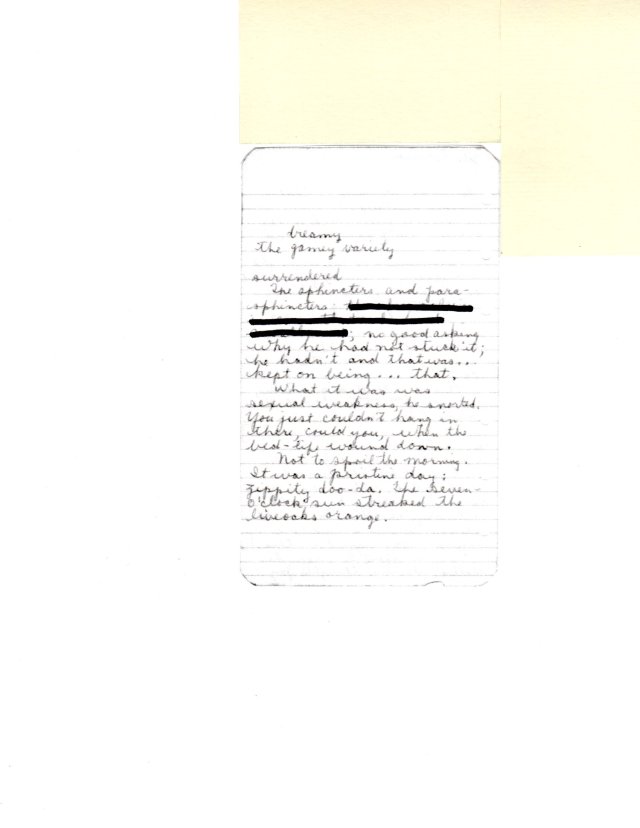 breamy
the gamey variety
surrendered
The sphincters and para-
sphincters
; no good asking
why he had not stuck it;
he hadn't and that was...
kept on being... that.
What it was was
sexual weakness, he snorted.
You just couldn't hang in
there, could you, when the
bed-life wound down.
Not to spoil the morning.
It was a pristine day;
zippity doo-da. The seven-
o'clock sun streaked the
liveoaks orange.